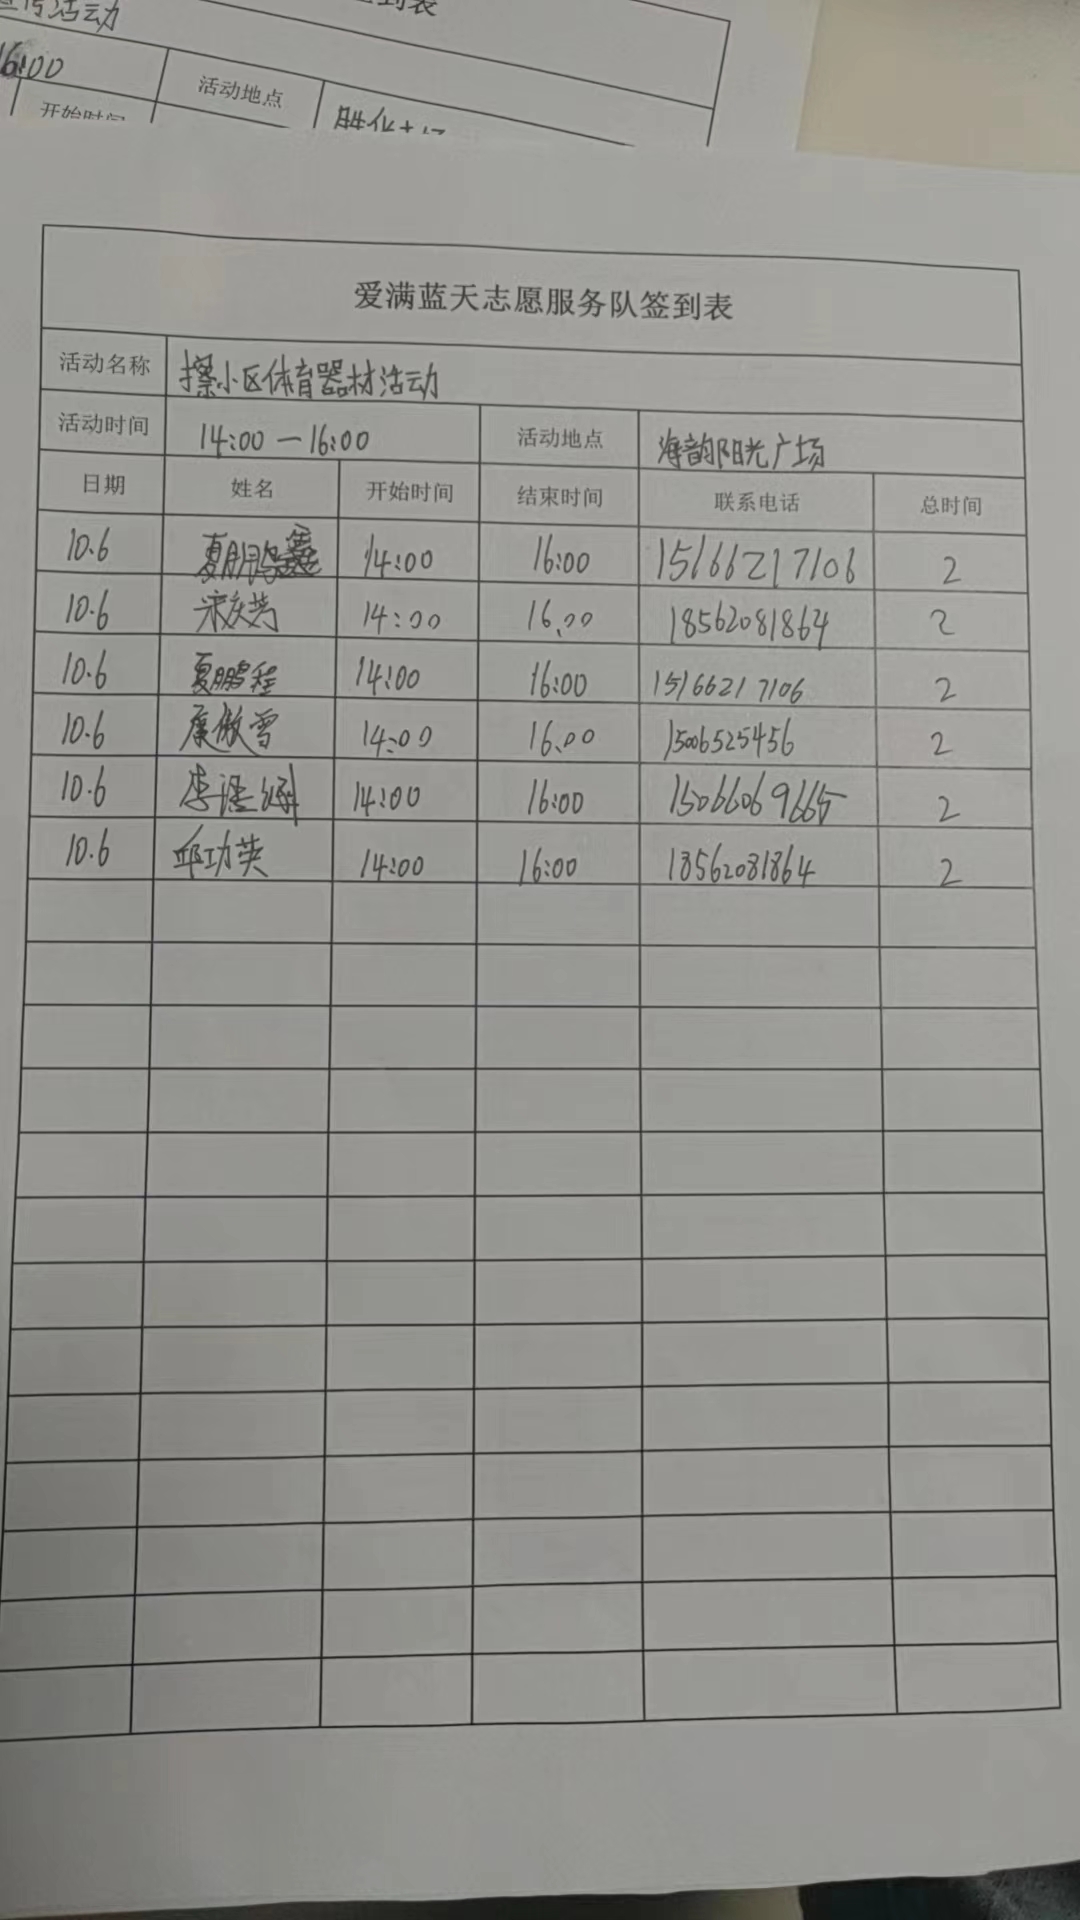 活动
16:00 活动地点
开始时间
爱满蓝天志愿服务队签到表
活动名称 擦小区体育器材活动
活动时间 14:00—16:00 活动地点 海韵阳光广场
日期 姓名 开始时间 结束时间 联系电话 总时间
10.6 夏鹏鑫 14:00 16:00 15166217106 2
10.6 宋庆芳 14:00 16.00 18562081864 2
10.6 夏鹏程 14:00 16:00 15166217106 2
10.6 康傲雪 14:00 16.00 15006525456 2
10.6 李 14:00 16:00 15066069665 2
10.6 邱功英 14:00 16:00 18562081864 2